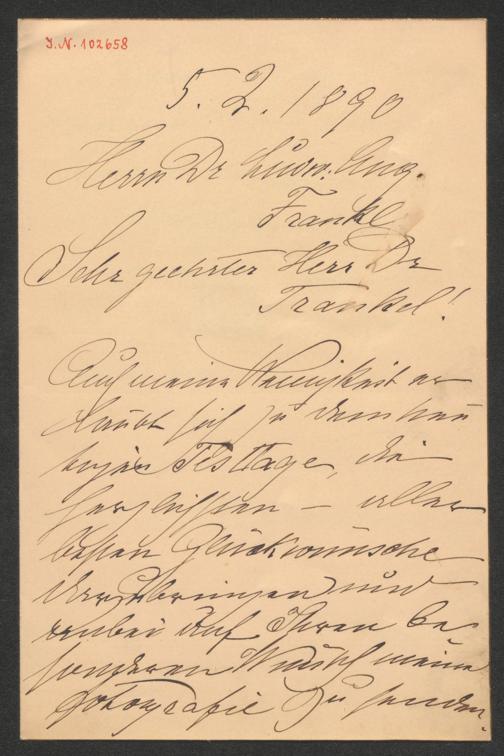 J.N. 102658
5. 2. 1890
Herrn Dr Ludw. Aug.
Frankl
Sehr geehrter Herr Dr
Frankel!
Auch meine Wenigkeit er
laubt sich zu dem heu
tigen Festtage, die
herzlichsten – aller
besten Glückwünsche
darzubringen und
anbei auf Ihren be
sonderen Wunsch meine
Fotografie zu senden.